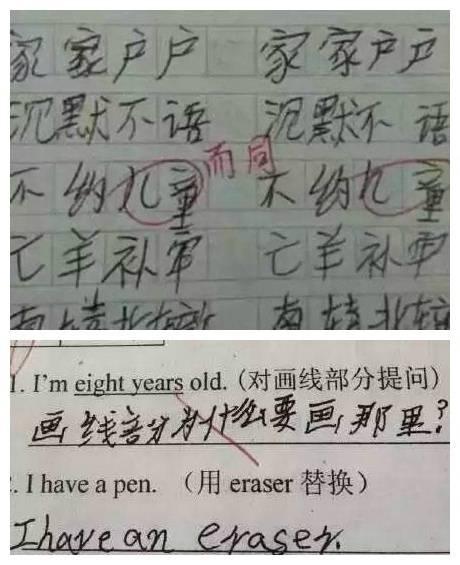 家家户户 家家户户
沉默不语 沉默不语
不约儿童 而同 不约儿童
亡羊补牢 亡羊补牢
南辕北辙 南辕北辙
1. I'm eight years old. (对画线部分提问)
画线部分为什么要画那里?
. I have a pen. （用 eraser 替换）
I have an eraser.